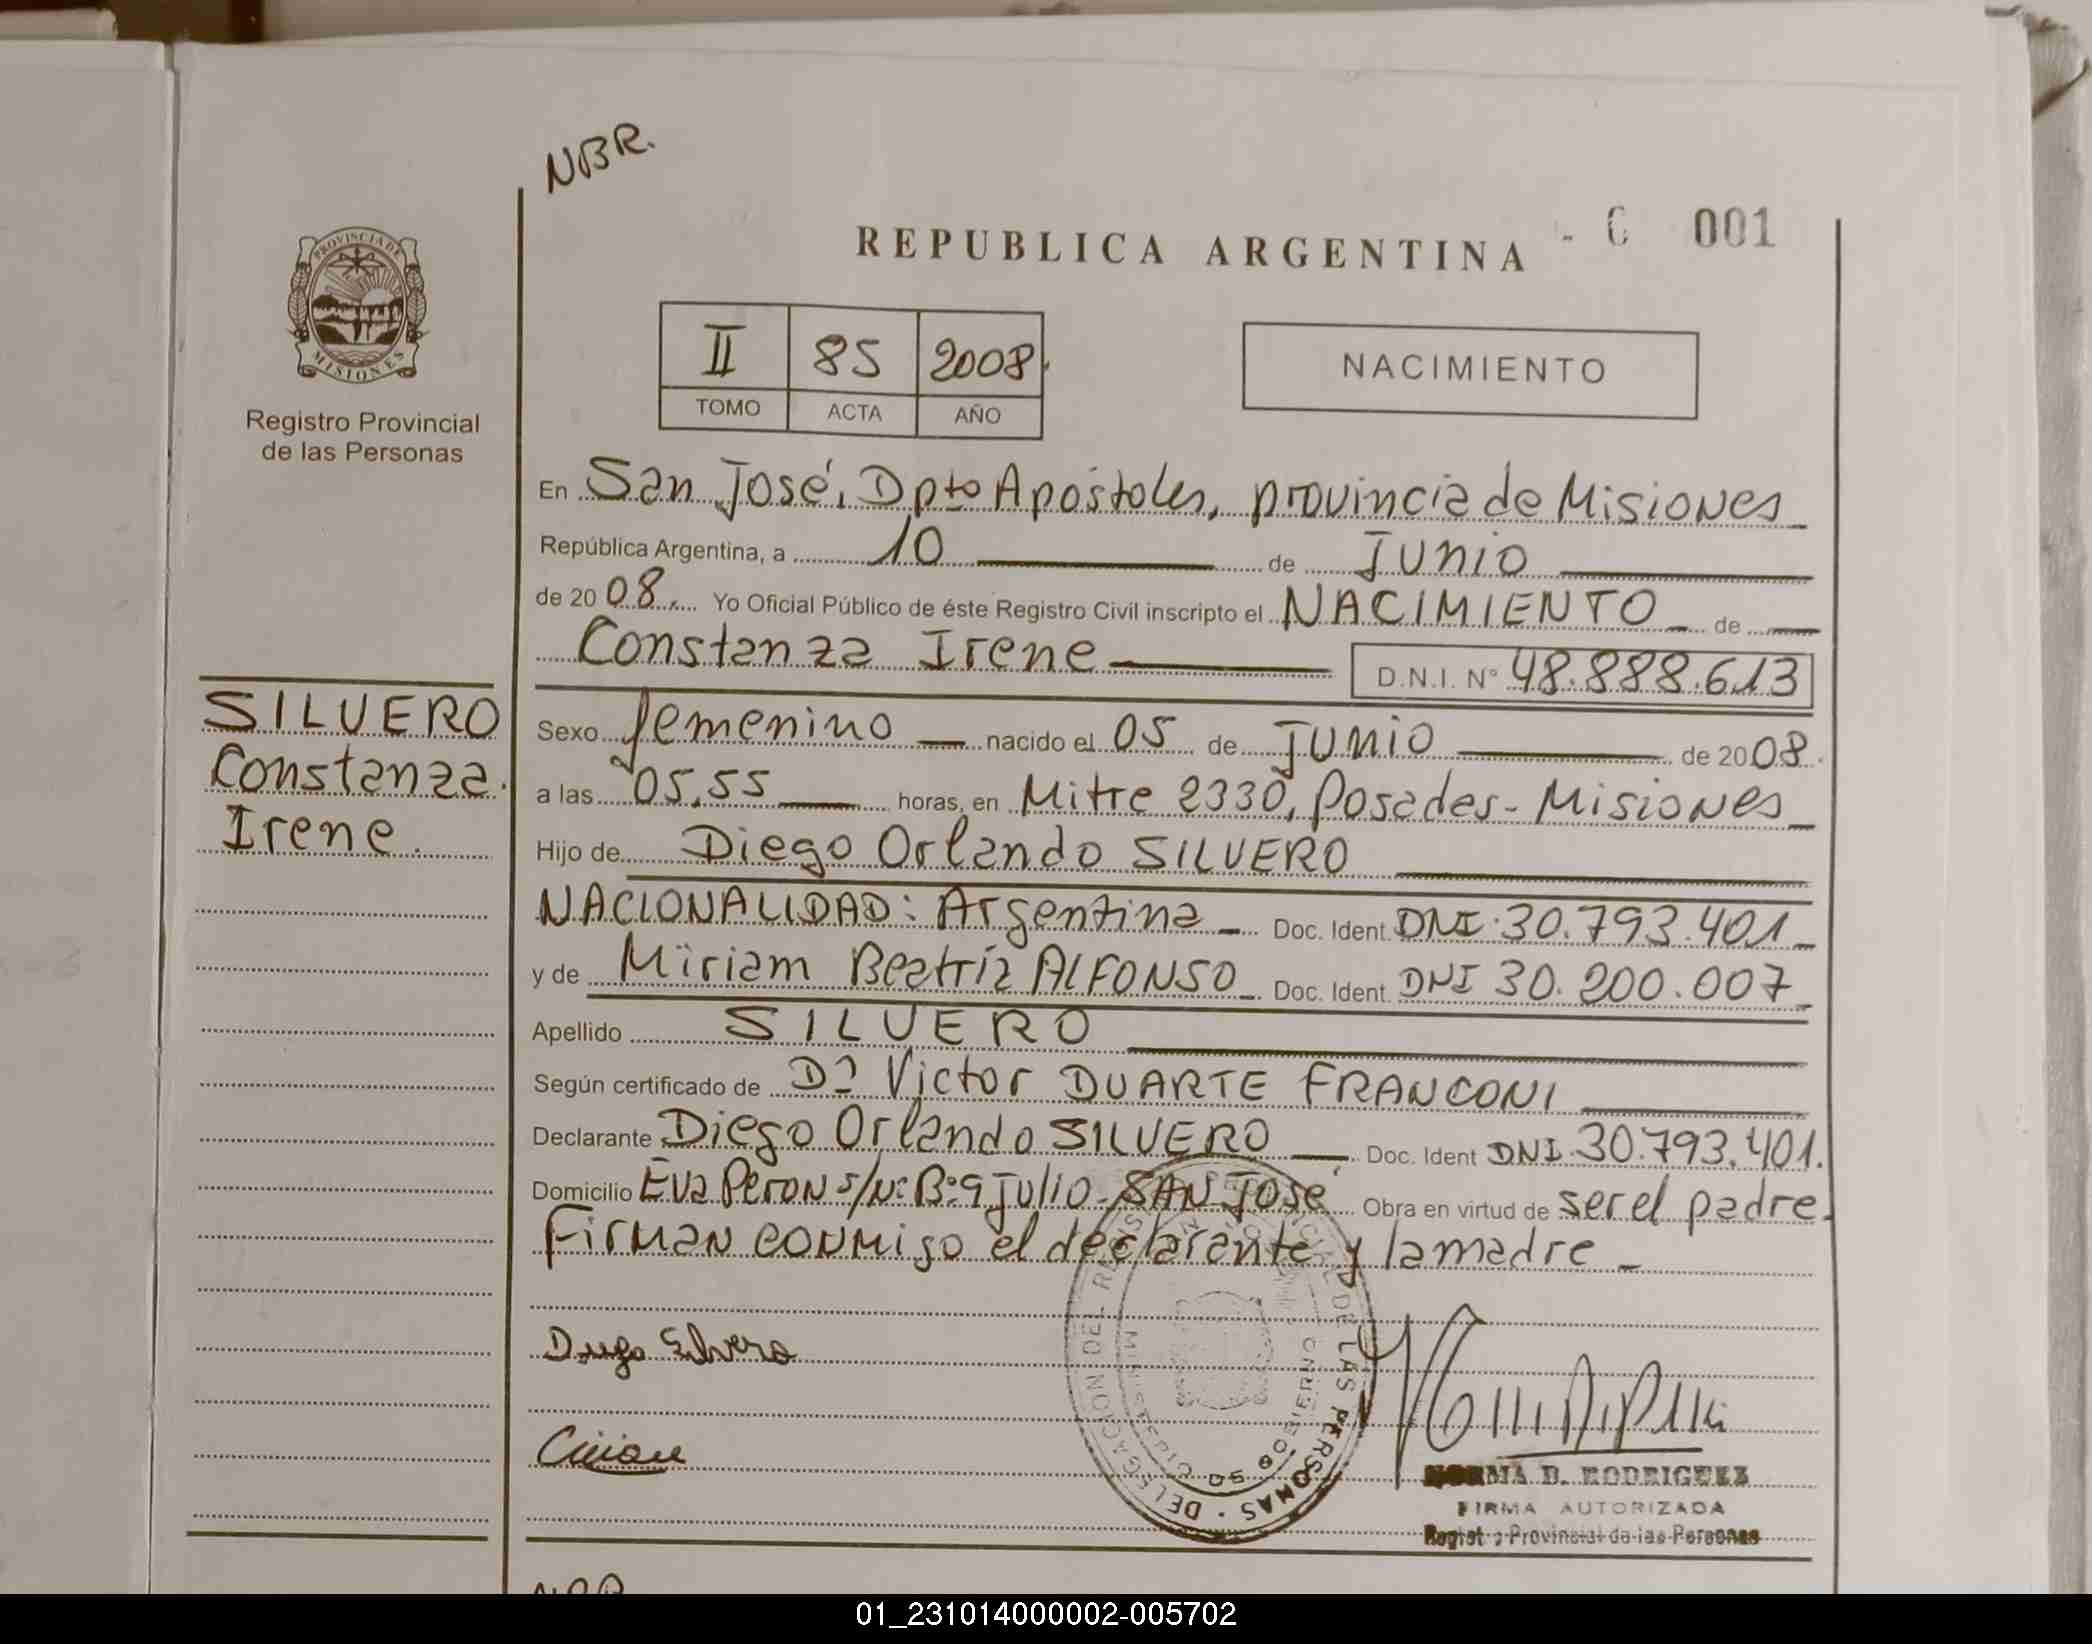 NBR.
REPUBLICA ARGENTINA - 001
PROVINCIA DE
MISIONES
Registro Provincial
de las Personas
II 85 2008
TOMO ACTA AÑO
NACIMIENTO
En San José, Dpto Apóstoles, provincia de Misiones
República Argentina, a 10 de Junio
de 2008. Yo Oficial Público de éste Registro Civil inscripto el NACIMIENTO de
Constanza Irene D.N.I. N° 48.888.613
SILVERO
Constanza
Irene.
Sexo femenino nacido el 05 de Junio de 2008.
a las 05,55 horas, en Mitre 2330, Posadas - Misiones
Hijo de Diego Orlando SILVERO
NACIONALIDAD: Argentina Doc. Ident. DNI 30.793.401
y de Miriam Beatríz ALFONSO Doc. Ident. DNI 30.200.007
Apellido SILVERO
Según certificado de Dr Victor DUARTE FRANCONI
Declarante Diego Orlando SILVERO Doc. Ident DNI 30.793.401.
Domicilio Eva Peron s/N° B° 9 Julio - SAN José Obra en virtud de ser el padre.
Firman conmigo el declarante y la madre
Diego Silvero
DELEGACION DE LAS PERSONAS
MINISTERIO DE GOBIERNO
NORMA B. RODRIGUEZ
FIRMA AUTORIZADA
Registro Provincial de las Personas
01_231014000002-005702